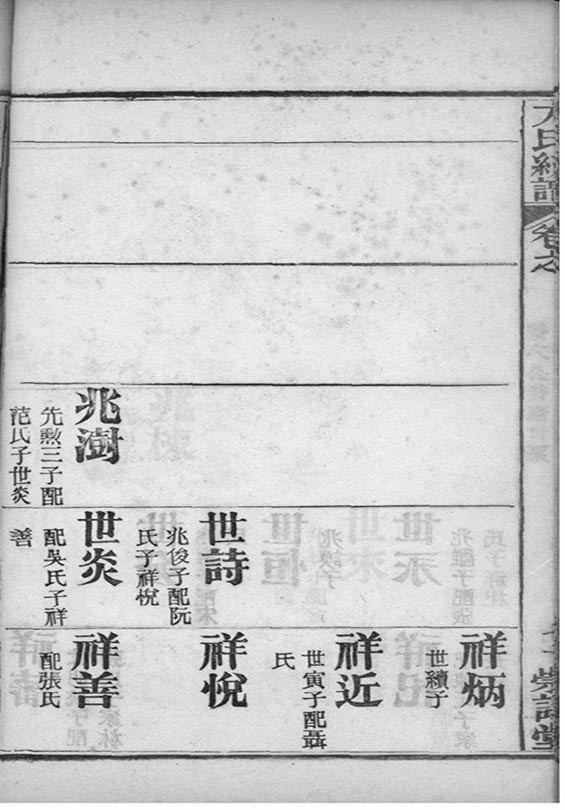 氏經譜
卷之
兆澍
先勲三子配
范氏子世炎
世詩
兆俊子配阮
氏子祥悅
世炎
配吳氏子祥
善
祥炳
世續子
祥近
世寅子配聶
氏
祥悅
祥善
配張氏